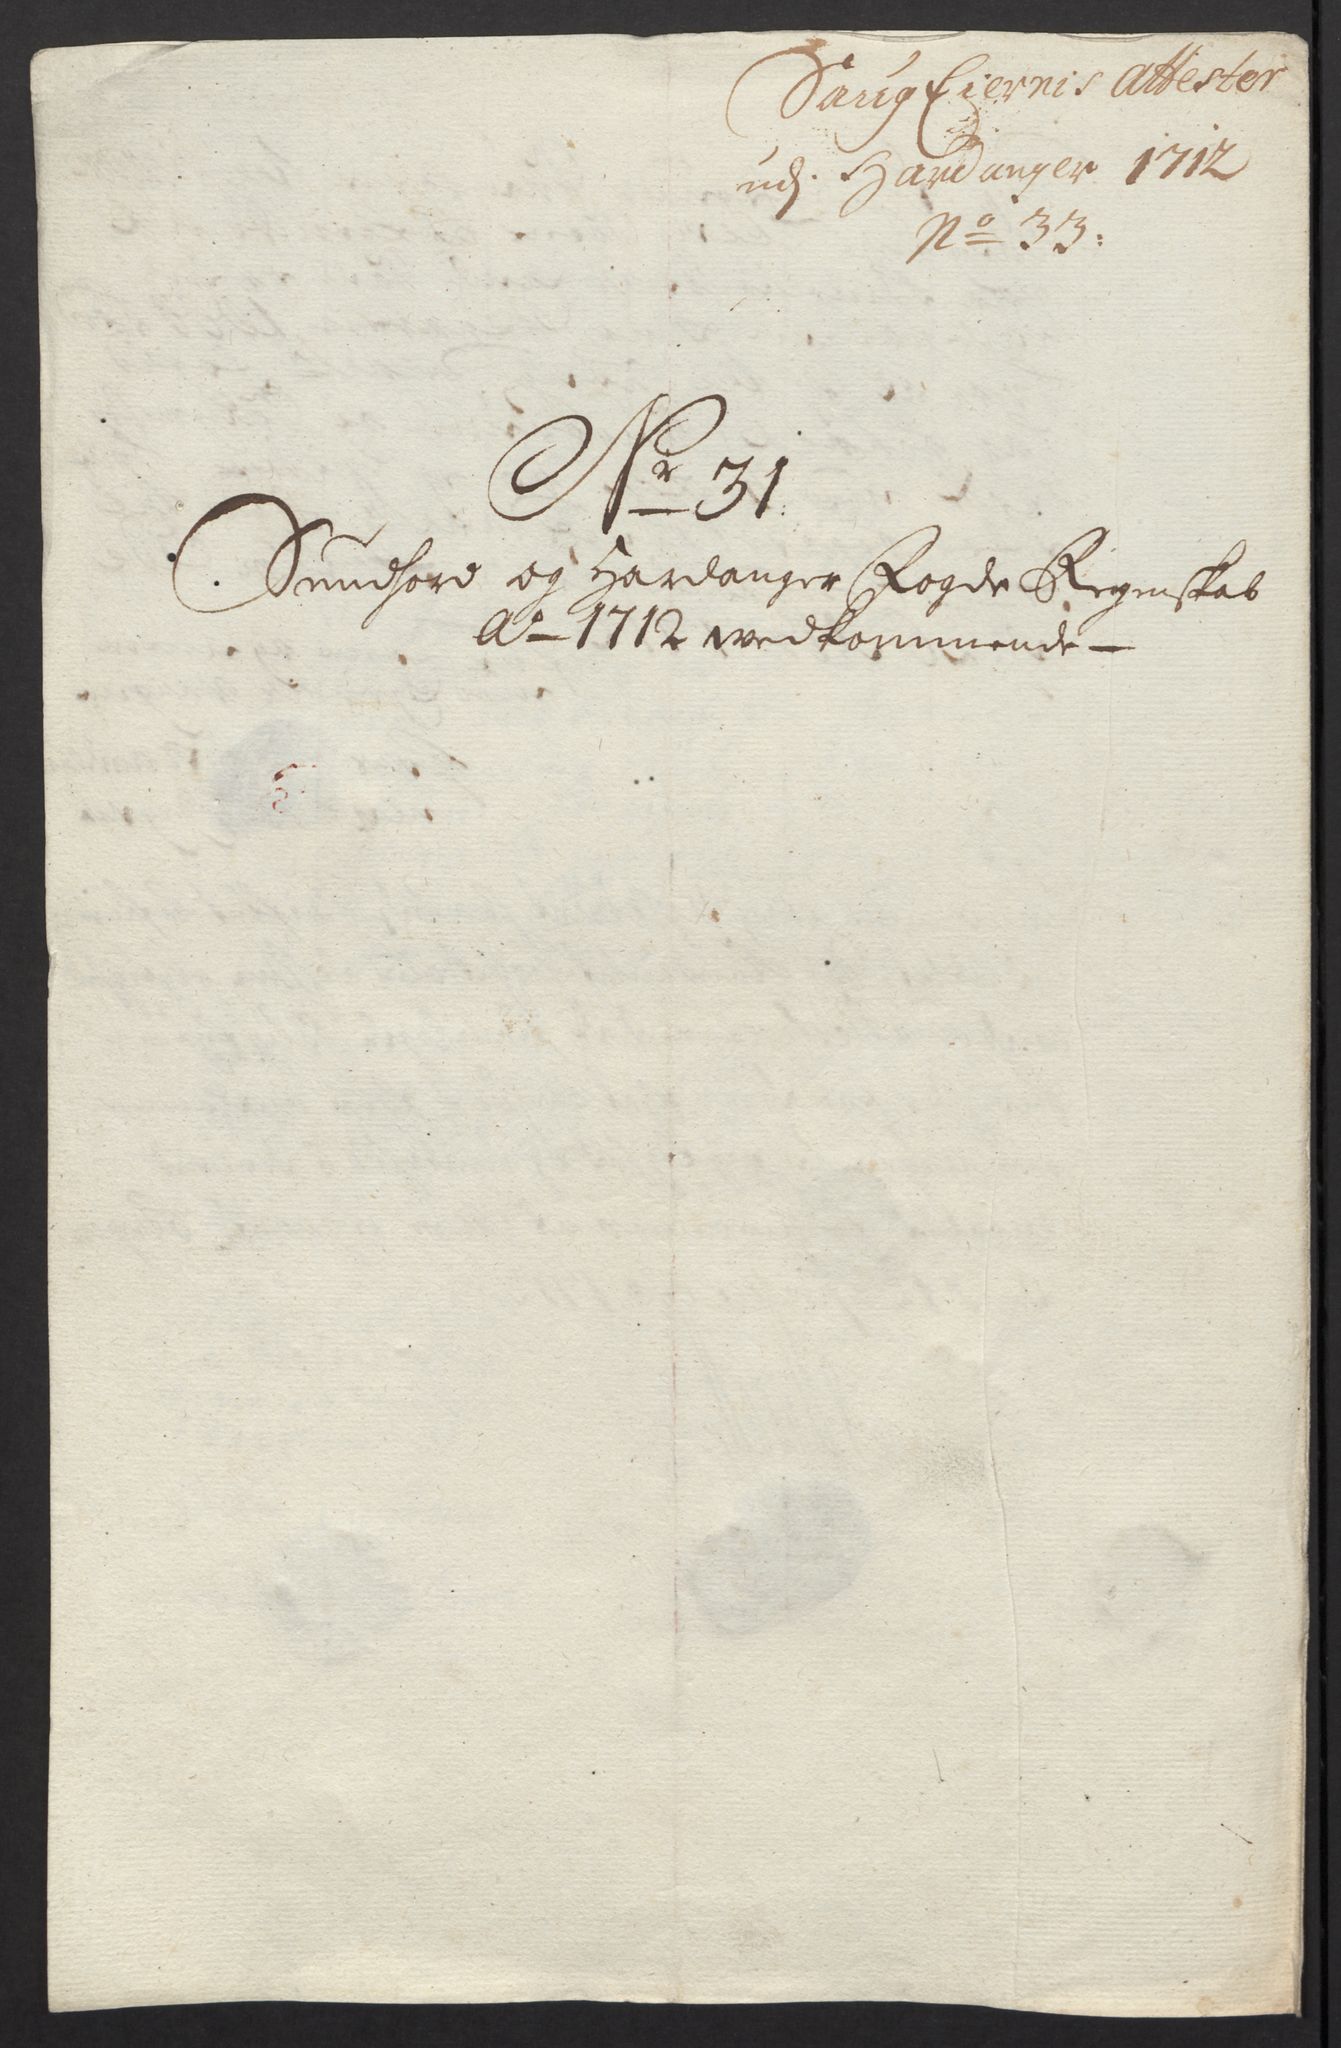 Saug Eiernis Attester
udj. Hardanger 1712
No 33:
Nr 31.
Sundhord og Hardanger Fogde Regenskab
Ao 1712 vedkommende —